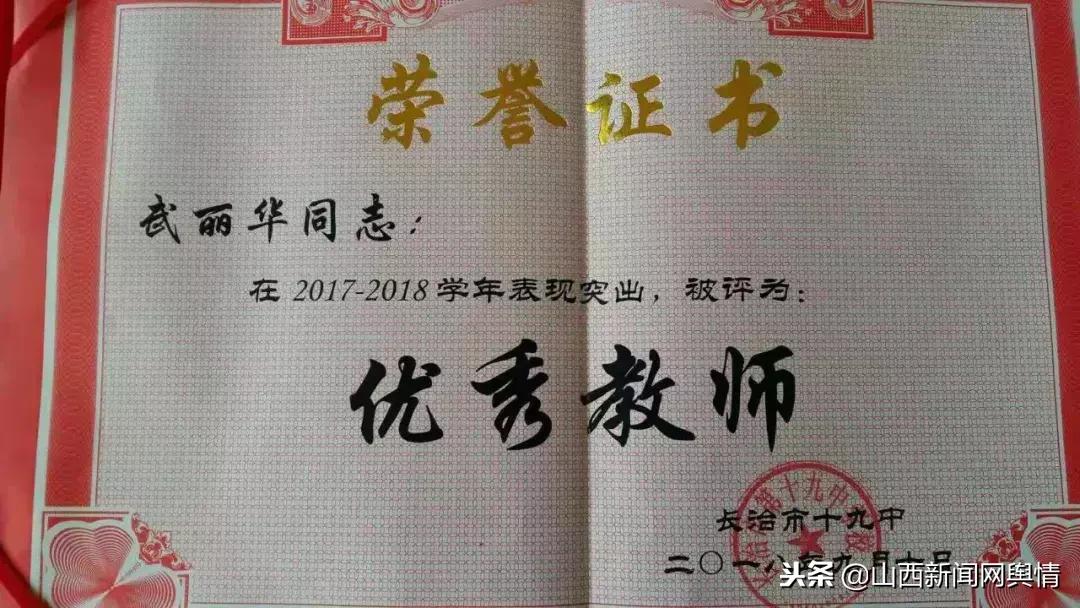 荣誉证书
武丽华同志：
在2017-2018学年表现突出，被评为：
优秀教师
长治市十九中
二〇一八年九月
头条@山西新闻网舆情